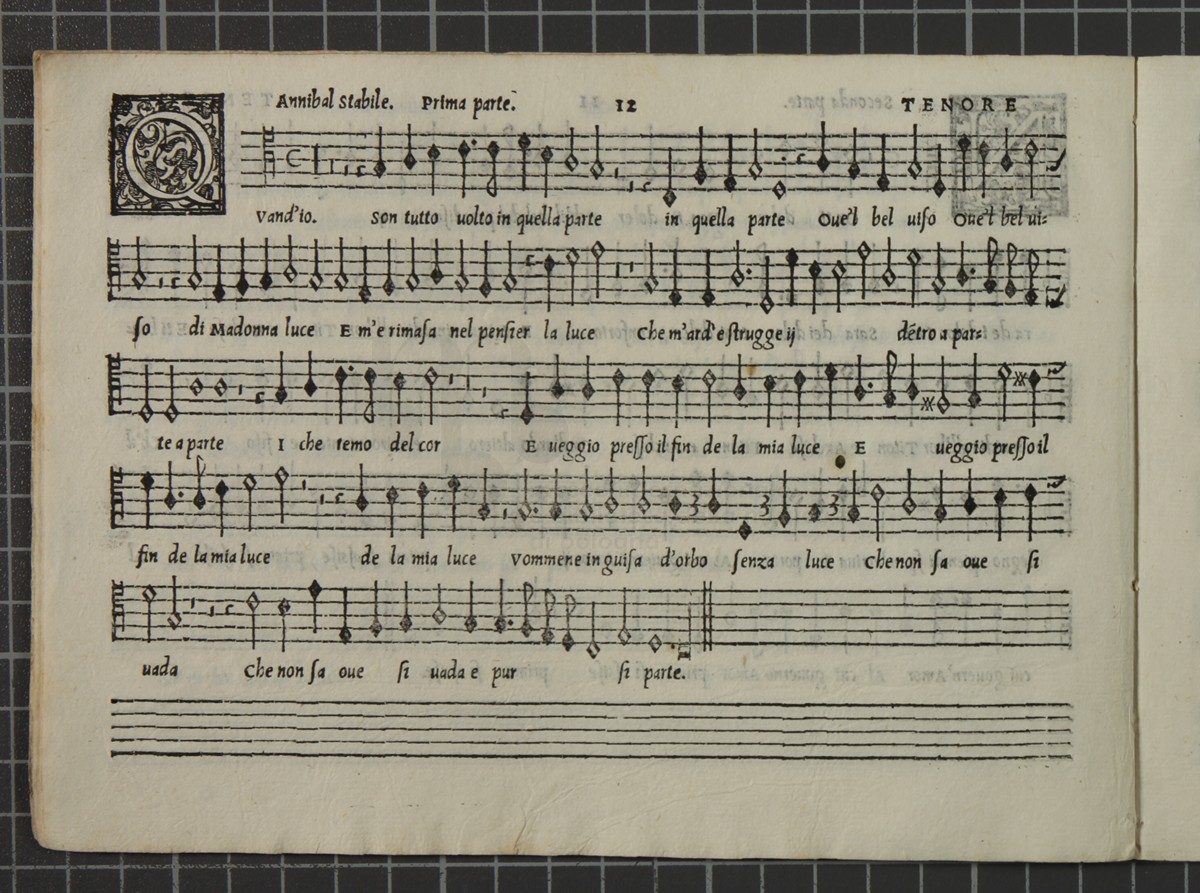 Annibal Stabile. Prima parte. 12 TENORE
Q
Vand'io. Son tutto uolto in quella parte in quella parte Oue'l bel uiso Oue'l bel ui-
so di Madonna luce E m'e rimasa nel pensier la luce Che m'ard'e strugge ij détro a par-
te a parte I che temo del cor E ueggio presso il fin de la mia luce E ueggio presso il
fin de la mia luce de la mia luce Vommene in guisa d'orbo senza luce Che non sa oue si
uada Che non sa oue si uada e pur si parte.